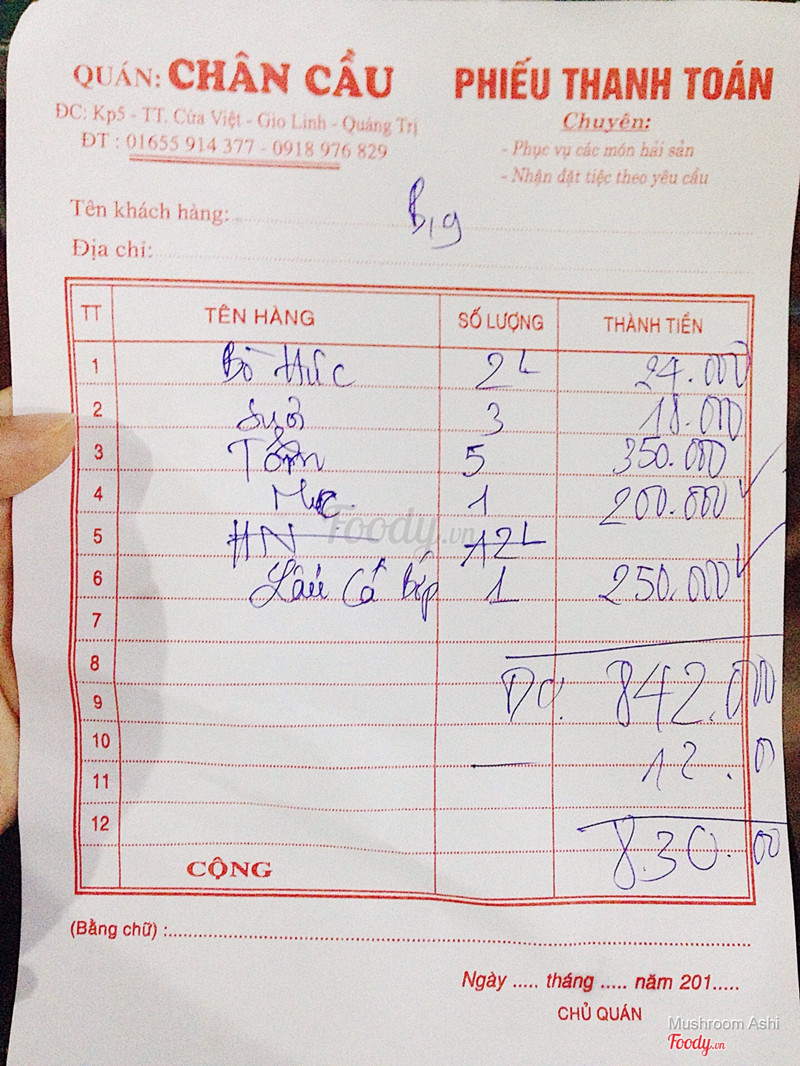 QUÁN: CHÂN CẦU
PHIẾU THANH TOÁN
ĐC: Kp5 - TT. Cửa Việt - Gio Linh - Quảng Trị
ĐT : 01655 914 377 - 0918 976 829
Chuyên:
- Phục vụ các món hải sản
- Nhận đặt tiệc theo yêu cầu
Tên khách hàng: Big
Địa chỉ:
TT TÊN HÀNG SỐ LƯỢNG THÀNH TIỀN
1 Bò Húc 2L 24.000
2 3 18.000
3 Tôm 5 350.000
4 Mực 1 200.000
5 HN 12L
6 Lẩu Cá bớp 1 250.000
7
8 842.000
9
10 12.0
11
12 830.00
CỘNG
(Bằng chữ) :
Ngày ..... tháng ..... năm 201.....
CHỦ QUÁN
Foody.vn
Mushroom Ashi
Foody.vn